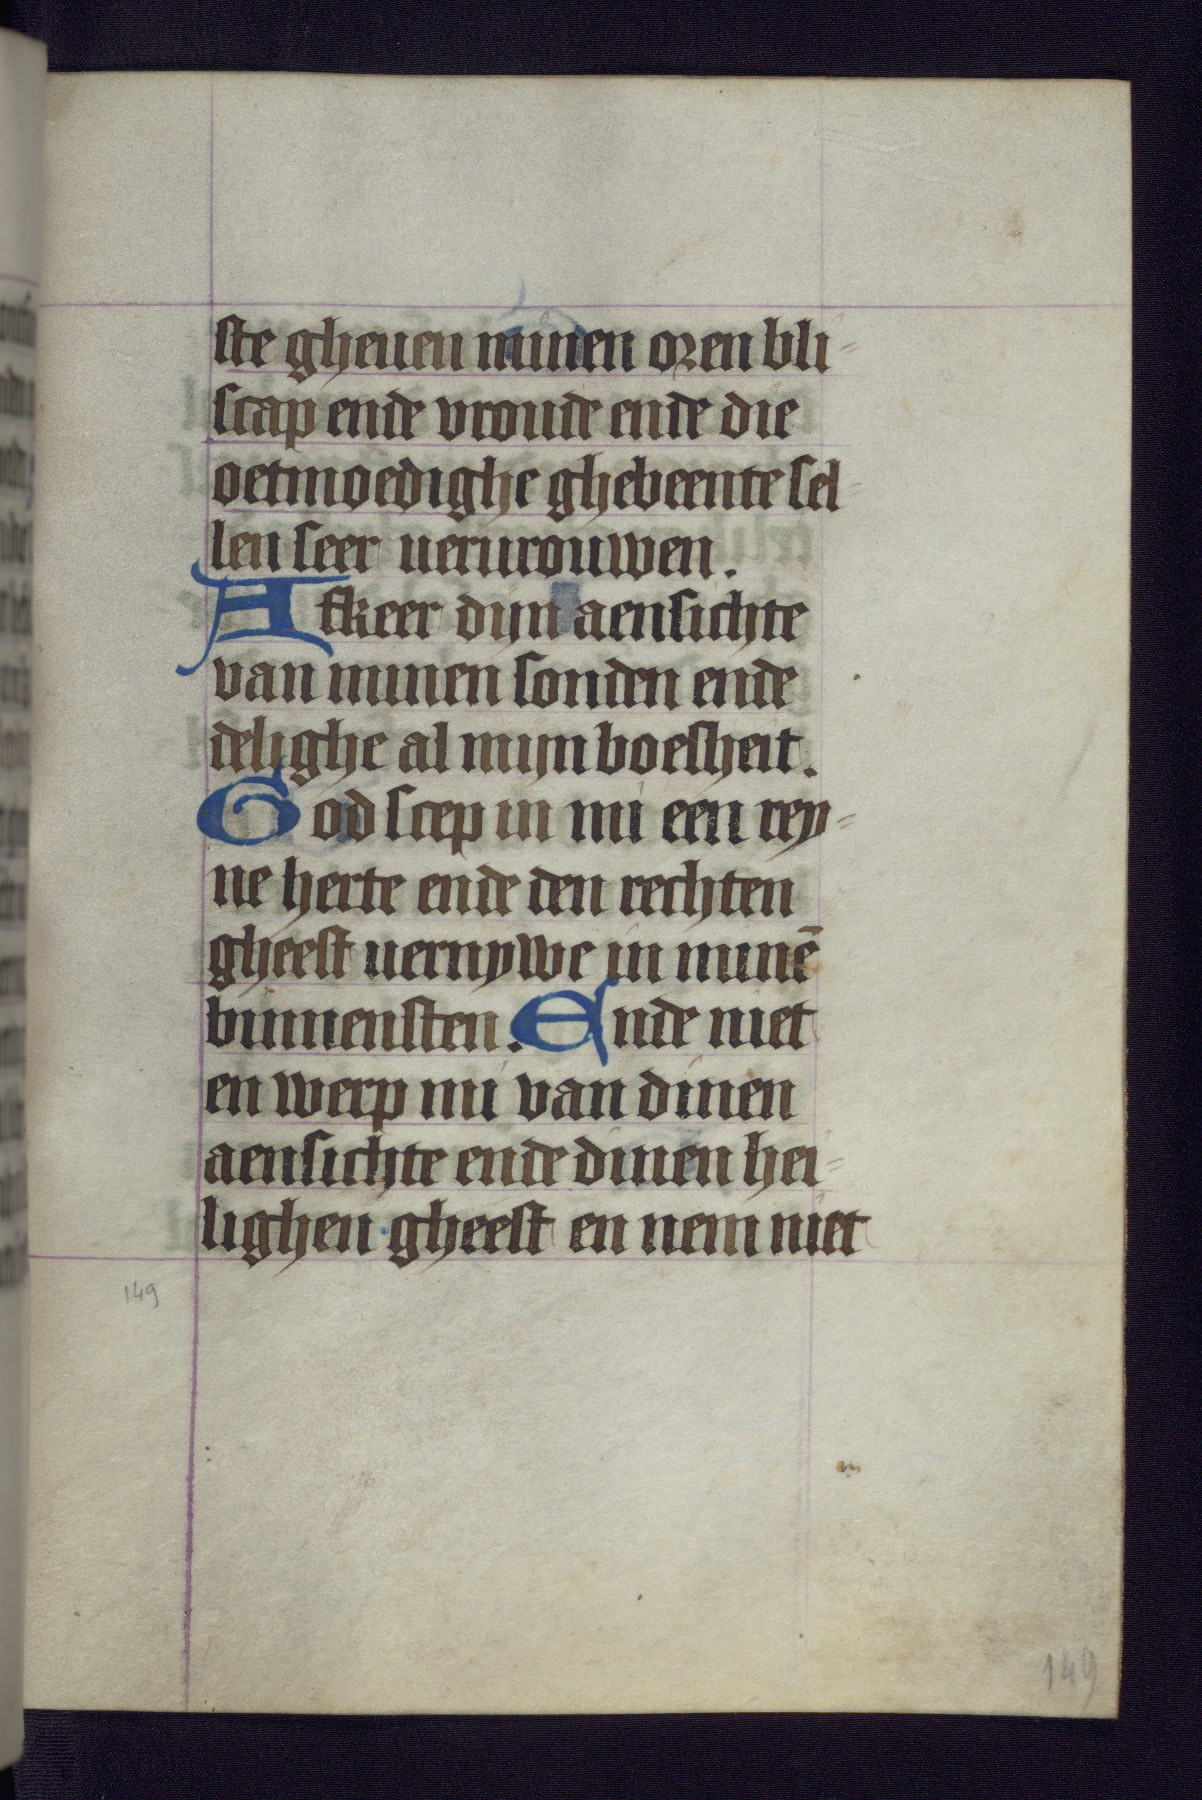 ste gheuen minen oren bli-
scap ende vroude ende die
oetmoedighe ghebeente sel-
len seer uerurouwen.
Afkeer dijn aensichte
van minen sonden ende
delighe al mijn boesheit.
God scep in mi een rey-
ne herte ende den rechten
gheest uernywe in minē
binnensten. Ende niet
en werp mi van dinen
aensichte ende dinen hei-
lighen gheest en nem niet
149
149